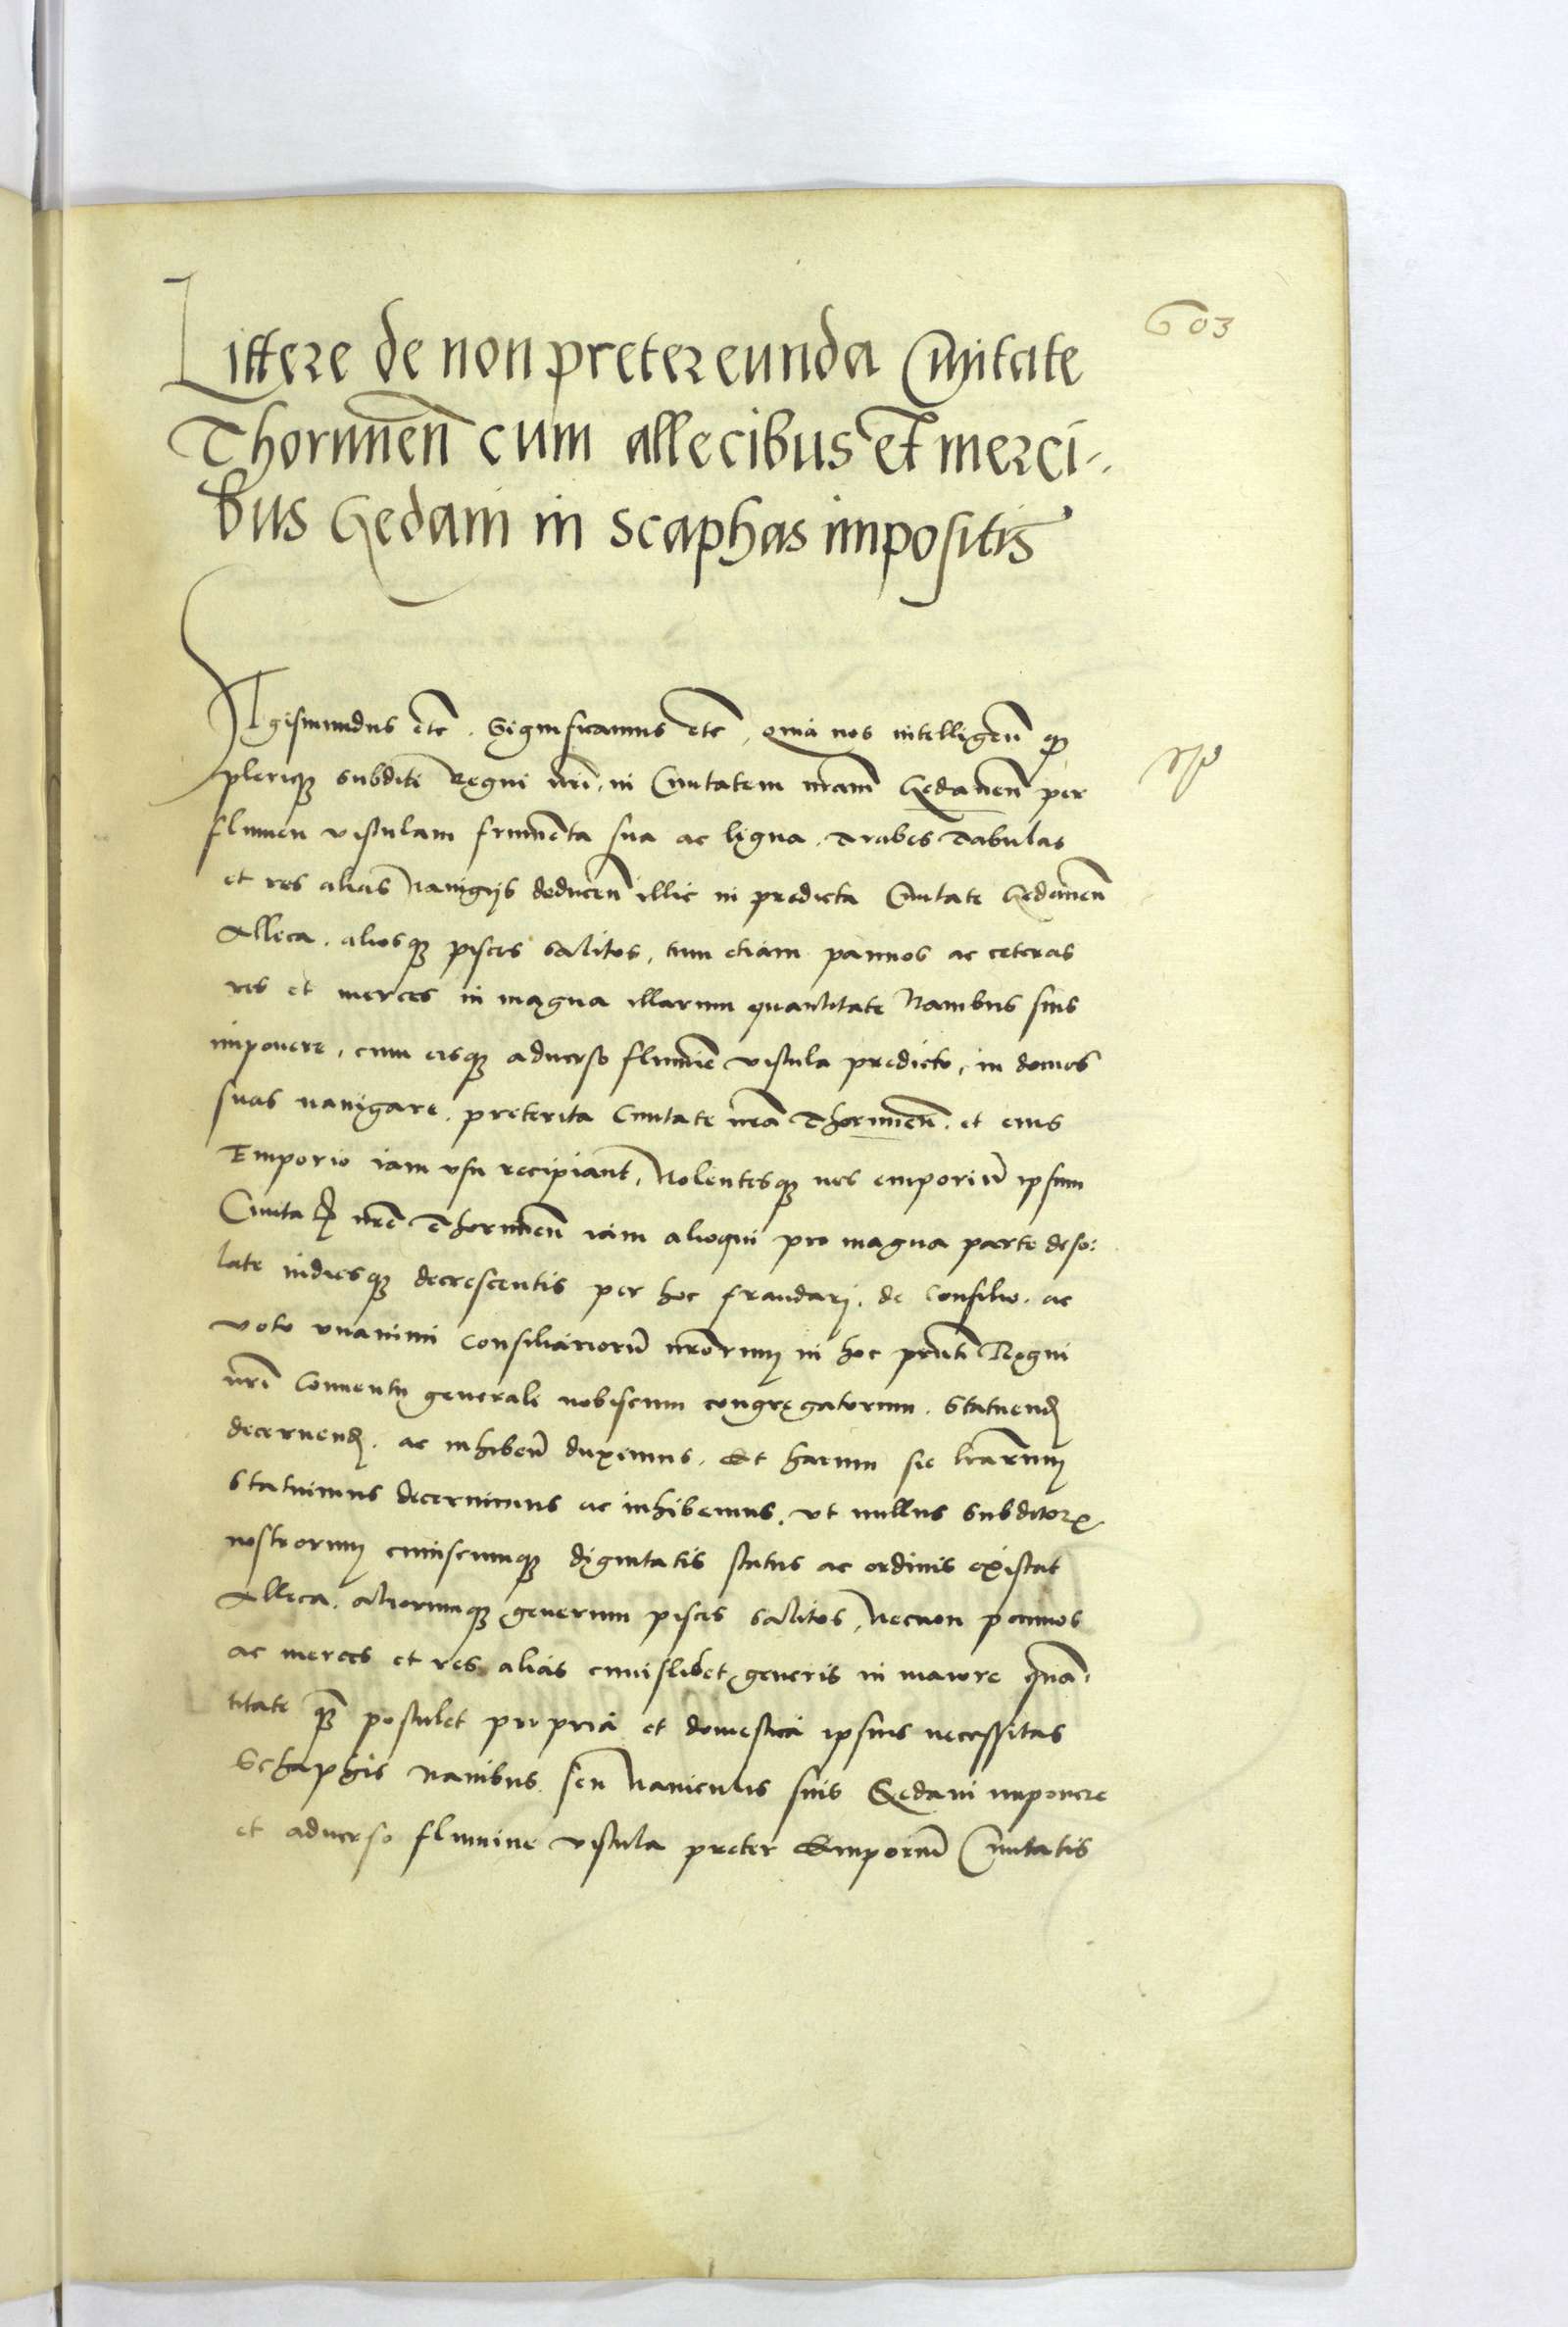 603
Littere de non pretereunda Civitate
Thorunen̄ cum allecibus et merci-
bus Gedani in scaphas impositis
Sigismundus etc̄. Significamus etc̄, quia nos intelligen̄ qꝫ
plerique subditi Regni nr̄i, in Civitatem nrām Gedanen̄ per
flumen vistulam frumēta sua ac ligna. Trabes Tabulas
et res alias Navigijs deducen̄ illic in predicta Civitate Gedanen̄
Alleca. aliosqꝫ pisces salitos, tum etiam pannos ac ceteras
res et merces in magna illarum quantitate Navibus suis
imponere, cum eisqꝫ adverso flumīe vistula predicto, in domos
suas navigare. preterita Civitate nrā Thorunen̄. et eius
Emporio iam usu recipiant̄, Nolentesqꝫ nos emporiū ipsum
Civitatꝭ nrē Thorunen̄ iam alioqui pro magna parte deso:
late indiesqꝫ decrescentis per hoc fraudari, de Consilio. ac
voto unanimi consiliariorū nrōrum in hoc prn̄ti Regni
nr̄i Conventu generale nobiscum congregatorum. Statuend̄
decernend̄. ac inhiben̄ duximus. Et harum sie lrārum
Statuimus decernimus ac inhibemus. ut nullus Subditorꝝ
nostrorum cuiuscumqꝫ dignitatis status ac ordinis existat
Alleca. aliorumqꝫ generum pisces salitos, Necnon pannos
ac merces et res alias cuiuslibet generis in maiore quā-
titate qꝫ postulet propria et domestica ipsius necessitas
Schaphis navibus seu Naviculis suis Gedani imponere
et adverso flumine vistula preter Emporiū Civitatis